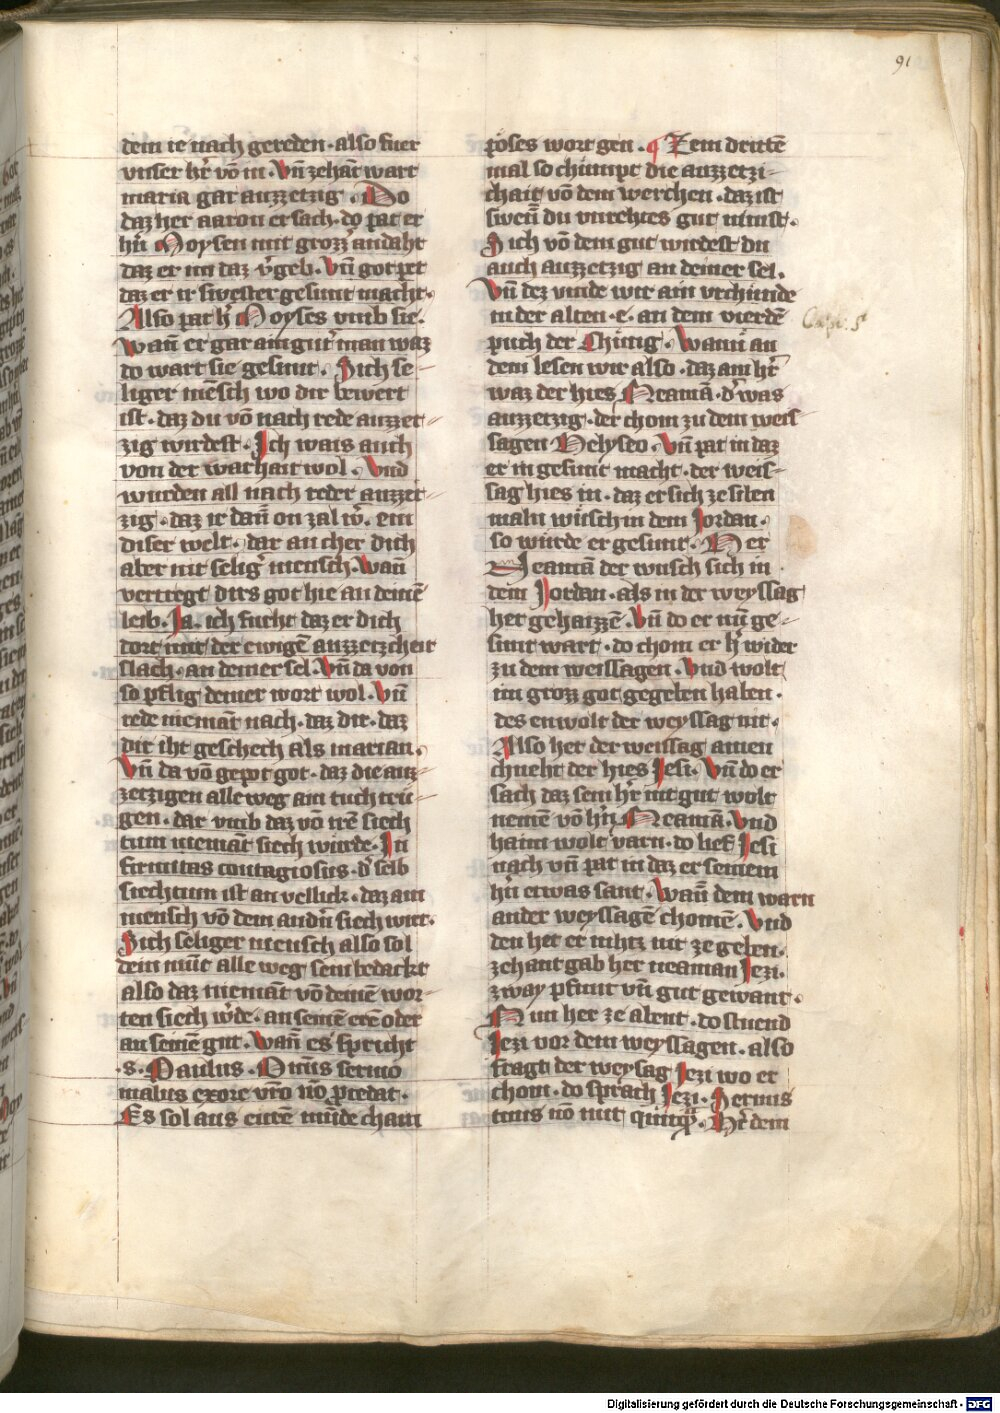 91
dem ie nach gereden · also fuer
vnser hr̄ vō in · Vn̄ zehāt wart
maria gar auzzetzig · Do
daz her aaron er sach · do pat er
hn̄ Moysen mit grozz' andaht
daz er im daz v'geb · Vn̄ got pet
daz er ir swester gesunt macht ·
Also pat h' Moyses vmb sie ·
Wan̄ er gar ain gut' man waz
do wart sie gesunt · Sich se-
liger mēsch wo dir bewert
ist · daz du vō nach rede auzzet-
zig wirdest · Ich wais auch
von der warhait wol · Vnd
wurden all nach reder auzzet-
zig · daz ir dan̄ on zal w' · em
diser welt · dar an cher dich
aber nit selig' mensch · Wan̄
vertregt dirs got hie an deinē
leib · Ja · ich furcht daz er dich
dort mit der ewigē auzzetzcheit
slach · an deiner sel · Vn̄ da von
so pflig deiner wort wol · Vn̄
rede niemāt nach · daz dir · daz
dir iht geschech als marian ·
Vn̄ da vō gepot got · daz die auz-
zetzigen alle weg ain tuch trü-
gen · dar vmb daz vō irē siech
tum niemāt siech würde · In
firmitas contagiosus · d' selb
siechtum ist an vellick · daz ain
mensch vō dem andn̄ siech wirt ·
Sich seliger mensch also sol
dein mūt alle weg sein bedackt
also daz niemāt vō deinē wor-
ten siech w'de · an seinē erē oder
an seinē gut · Wan̄ es spricht
· S · Paulus · Omīs sermo
malus exore vr̄o nō prodat ·
Es sol aus eurē mūde chain
pöses wort gen · Zem drittē
mal so chümpt die auzzetzi-
chait vō dem werchen · daz ist
swen̄ du vnrehtes gut nimst ·
Sich vō dem gut wirdest du
auch auzzetzig an deiner sel ·
Vn̄ dez vinde wir ain vrchünde
in der alten · e · an dem vierdē
puch der Chünig · Wann an
dem lesen wir also · daz ain hr̄
waz der hies Neamā · d' was
auzzetzig · der chom zu dem weis
sagen Helyseo · Vn̄ pat in daz
er in gesunt macht · der weis-
sag hies in · daz er sich ze siben
maln wüsch in dem Jordan ·
so würde er gesunt · Her
Neamā der wusch sich in
dem Jordan · als in der weyssag
het gehaizzē · Vn̄ do er nū ge-
sunt wart · do chom er h' wider
zu dem weissagen · Vnd wolt
im grozz got gegeben haben ·
des enwolt der weyssag nit ·
Also het der weissag ainen
chneht der hies Jesi · Vn̄ do er
sach daz sein hr̄ nit gut wolt
nemē vō hn̄ Neamā · Vnd
haim wolt varn · do lief Jesi
nach vn̄ pat in daz er seinem
hn̄ etwas sant · Wan̄ dem warn
ander weyssagē chomē · Vnd
den het er nihtz nit ze geben ·
zehant gab her neaman Jezi ·
zway pfunt vn̄ gut gewant ·
Nun her ze abent · do stuend
Jezi vor dem weyssagen · also
fragt der weysag Jezi wo er
chom · do sprach Jezi · Seruus
tuus nō iuit quoq̄ · Hr̄ dein
Digitalisierung gefördert durch die Deutsche Forschungsgemeinschaft - DFG